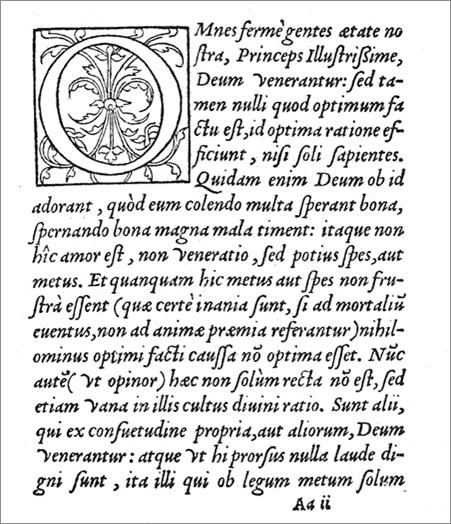 OMnes fermè gentes ætate no
ſtra, Princeps Illuſtriſsime,
Deum venerantur: ſed ta-
men nulli quod optimum fa
ctu eſt, id optima ratione ef-
ficiunt, niſi ſoli ſapientes.
Quidam enim Deum ob id
adorant, quòd eum colendo multa ſperant bona,
ſpernando bona magna mala timent: itaque non
hîc amor eſt, non veneratio, ſed potius ſpes, aut
metus. Et quanquam hic metus aut ſpes non fru-
ſtrà eſſent (quæ certè inania ſunt, ſi ad mortaliũ
euentus, non ad animæ præmia referantur) nihil-
ominus optimi facti cauſſa nõ optima eſſet. Nũc
autẽ (vt opinor) hæc non ſolùm recta nõ eſt, ſed
etiam vana in illis cultus diuini ratio. Sunt alii,
qui ex conſuetudine propria, aut aliorum, Deum
venerantur: atque vt hi prorſus nulla laude di-
gni ſunt, ita illi qui ob legum metum ſolum
Aa ii